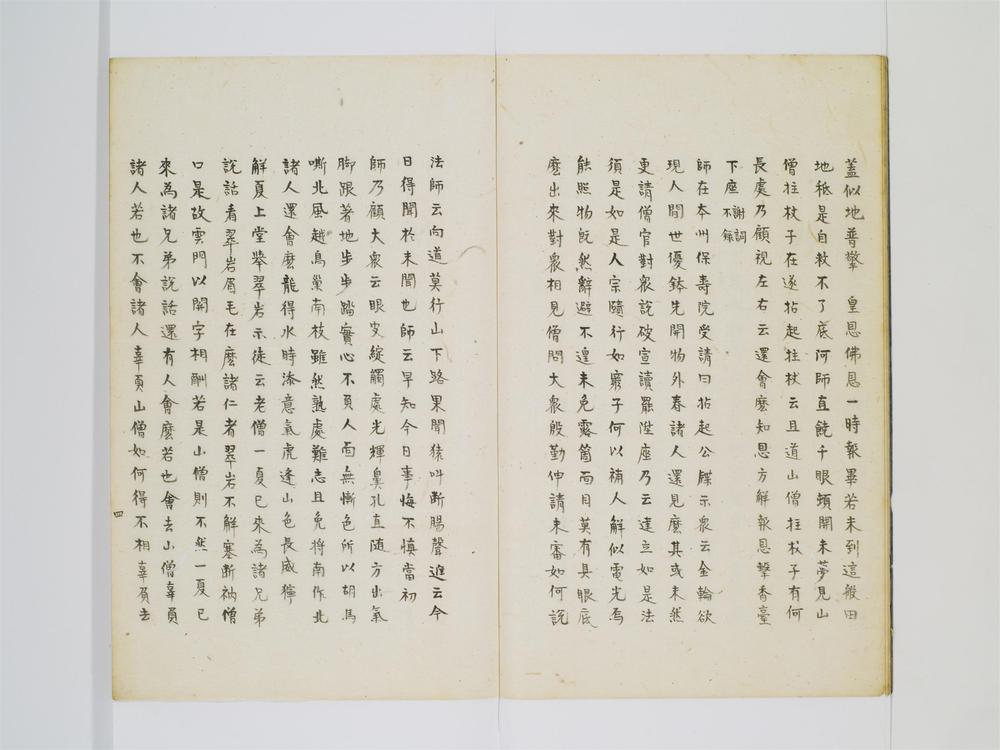 蓋似地普擎　皇恩佛恩一時報畢若未到這般田
地秪是自救不了底阿師直饒千眼頓開未夢見山
僧拄杖子在遂拈起拄杖云且道山僧拄杖子有何
長處乃顧視左右云還會麼知恩方解報恩擊香臺
下座謝詞不錄
師在本州保壽院受請日拈起公牒示衆云金輪欲
現人間世優鉢先開物外春諸人還見麼其或未然
更請僧官對衆說破宣讀罷陞座乃云達立如是法
須是如是人宗隨行如窮子何以補人解似電光焉
能照物既然辭避不遑未免露箇面目莫有具眼底
麼出來對衆相見僧問大衆殷勤伸請未審如何說
法師云向道莫行山下路果聞猿叫斷腸聲進云今
日得聞於未聞也師云早知今日事悔不慎當初
師乃顧大衆云眼皮綻觸處光輝鼻孔直隨方出氣
脚跟著地步步踏實心不負人面無慚色所以胡馬
嘶北風越鳥巢南枝雖然熟處難忘且免將南作北
諸人還會麼龍得水時添意氣虎逢山色長威獰
解夏上堂舉翠岩示徒云老僧一夏已來為諸兄弟
說話看翠岩眉毛在麼諸仁者翠岩不解塞斷衲僧
口是故雲門以關字相酬若是山僧則不然一夏已
來為諸兄弟說話還有人會麼若也會去山僧辜負
諸人若也不會諸人辜負山僧如何得不相辜負去
四